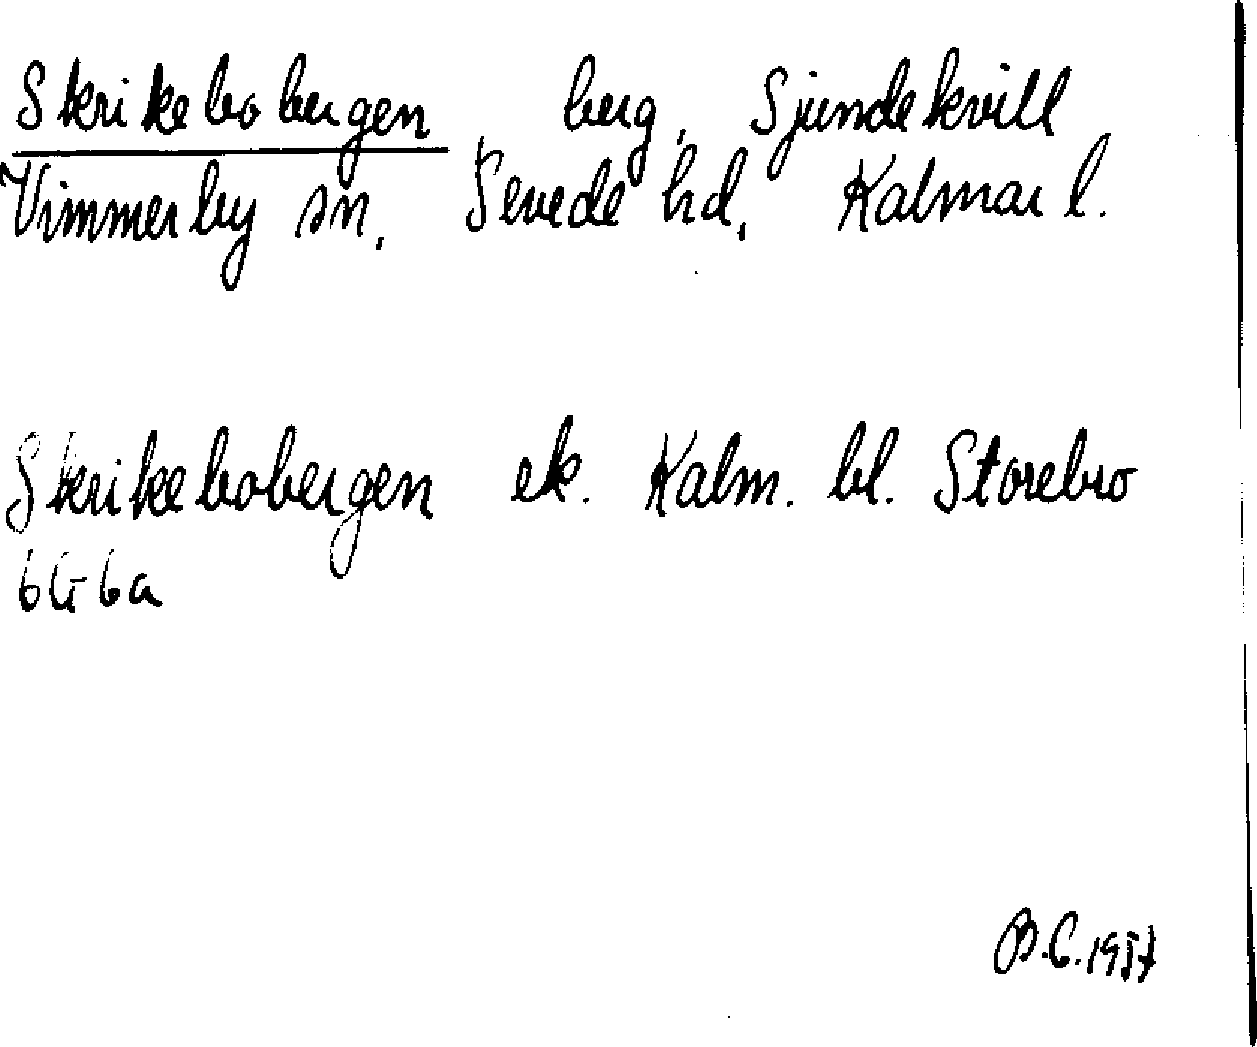 Skrikebobergen, berg, Sjundekvill
Vimmerby sn, Sevede hd, Kalmar l.
Skrikebobergen ek. Kalm. bl. Storebro
6G6a
B.C.1957